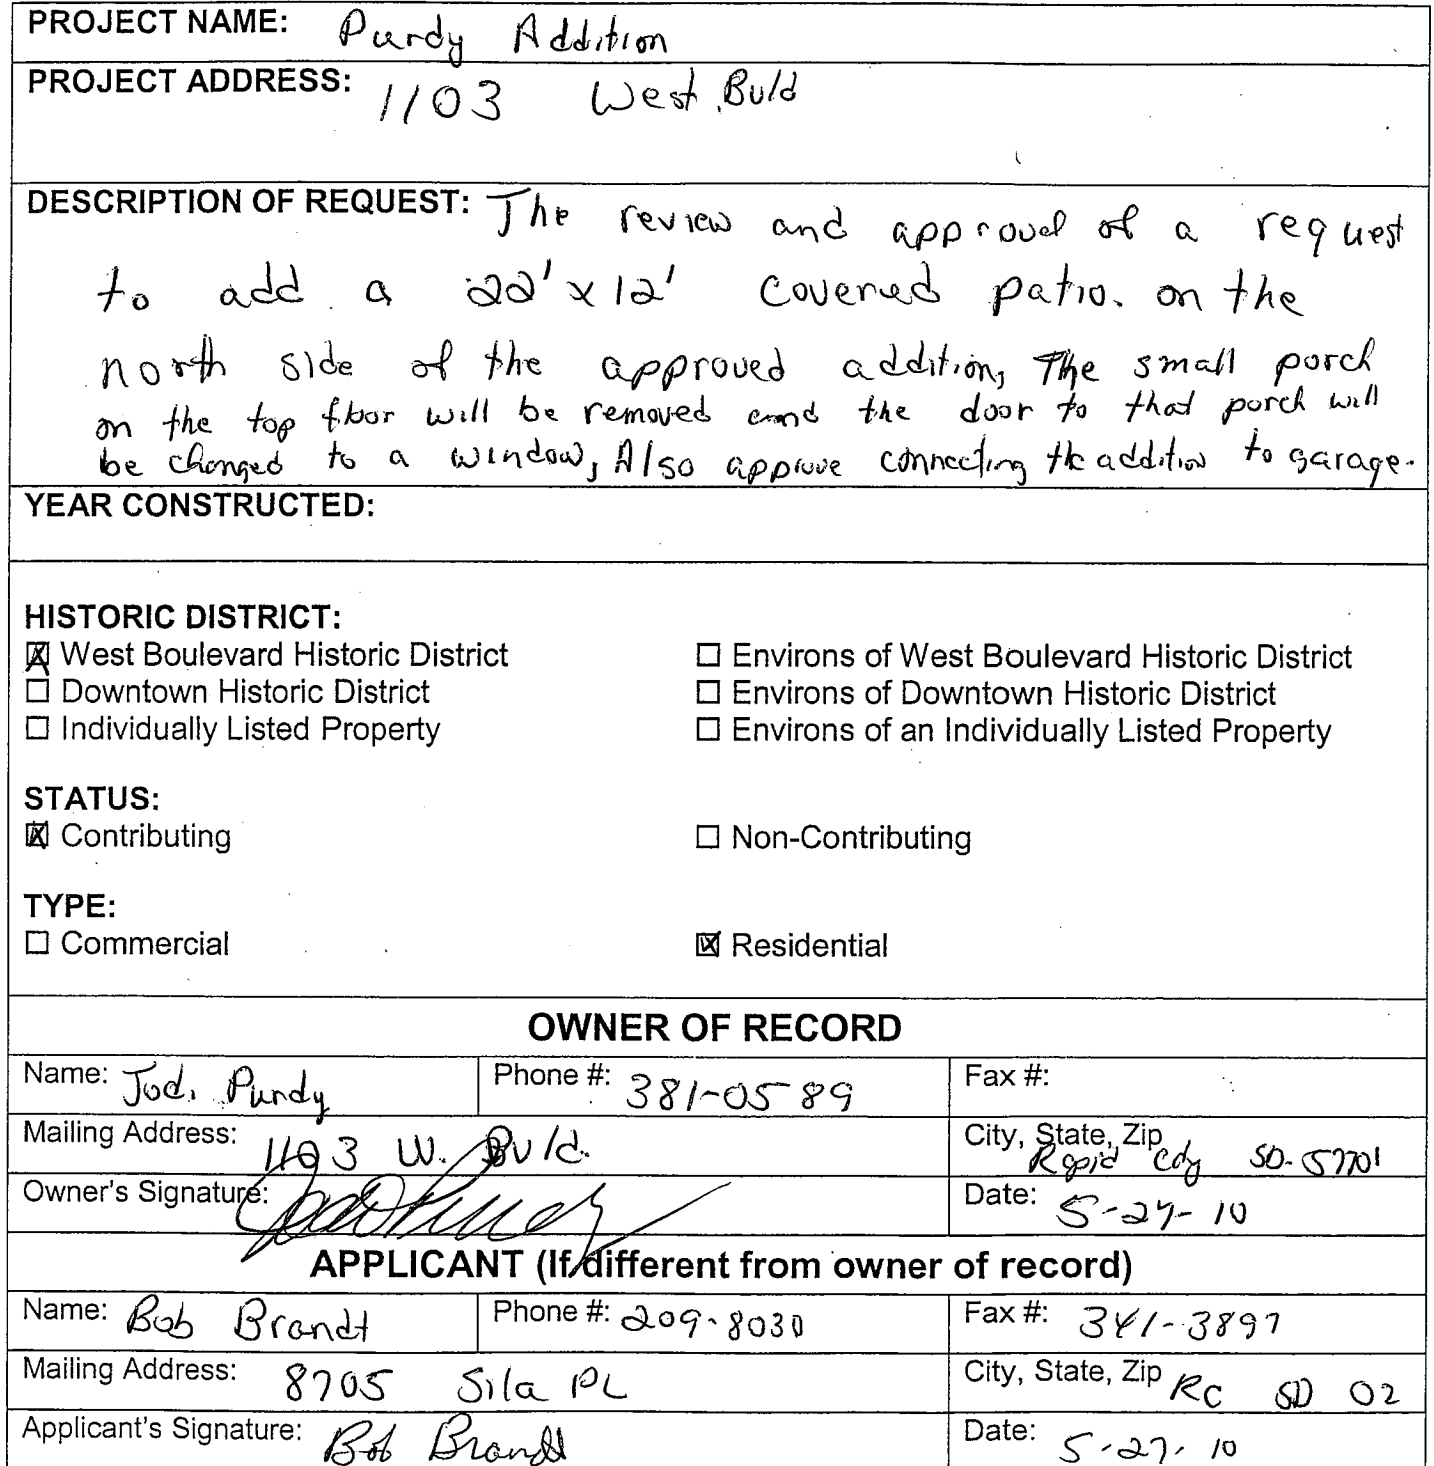 PROJECT NAME: Purdy Addition
PROJECT ADDRESS: 1103 West Buld
DESCRIPTION OF REQUEST: The review and approval of a request
to add a 22' x 12' covered patio. on the
north side of the approved addition, The small porch
on the top floor will be removed and the door to that porch will
be changed to a window, Also approve connecting the addition to garage.
YEAR CONSTRUCTED:
HISTORIC DISTRICT:
☒ West Boulevard Historic District ☐ Environs of West Boulevard Historic District
☐ Downtown Historic District ☐ Environs of Downtown Historic District
☐ Individually Listed Property ☐ Environs of an Individually Listed Property
STATUS:
☒ Contributing ☐ Non-Contributing
TYPE:
☐ Commercial ☒ Residential
OWNER OF RECORD
Name: Jodi Purdy Phone #: 381-0589 Fax #:
Mailing Address: 1103 W. Bvld. City, State, Zip Rapid City SD. 57701
Owner's Signature: Date: 5-27-10
APPLICANT (If different from owner of record)
Name: Bob Brandt Phone #: 209-8030 Fax #: 341-3897
Mailing Address: 8705 Sila PL City, State, Zip RC SD 02
Applicant's Signature: Bob Brandt Date: 5-27-10